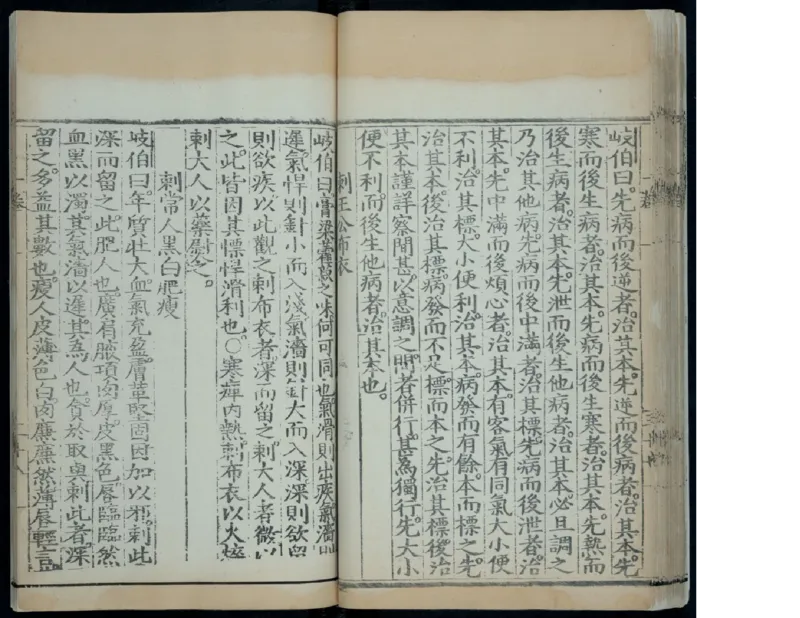 岐伯曰先病而後逆者治其本先逆而後病者治其本先
寒而後生病者治其本先病而後生寒者治其本先熱而
後生病者治其本先泄而後生他病者治其本必且調之
乃治其他病先病而後中滿者治其標先病而後泄者治
其本先中滿而後煩心者治其本有客氣有同氣大小便
不利治其標大小便利治其本病發而有餘本而標之先
治其本後治其標病發而不足標而本之先治其標後治
其本謹詳察間甚以意調之間者併行甚爲獨行先大小
便不利而後生他病者治其本也
刺王公布衣
岐伯曰膏粱藿菽之味何可同也氣滑則出疾氣濇則
遲氣悍則針小而入淺氣濇則針大而入深深則欲留
則欲疾以此觀之刺布衣者深而留之刺大人者微以
之此皆因其慓悍滑利也〇寒痺内熱刺布衣以火焠
刺大人以藥熨之
刺常人黑白肥瘦
岐伯曰年質壯大血氣充盈膚革堅固因加以邪刺此
深而留之此肥人也廣肩腋項肉厚皮黑色唇臨臨然
血黑以濁其氣濇以遲其爲人也貪於取與刺此者深
留之多益其數也瘦人皮薄色白肉廉廉然薄唇輕言